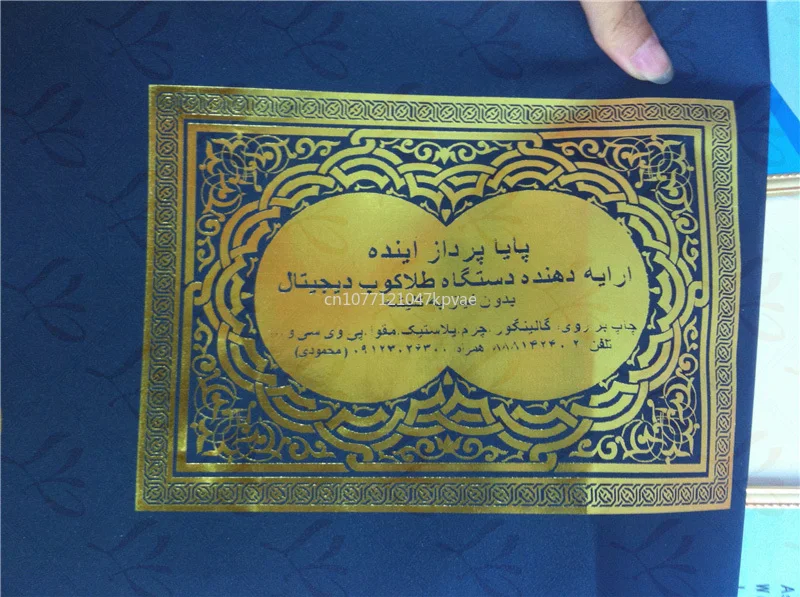 پایا پرداز اینده
ارایه دهنده دستگاه طلاکوب دیجیتال
بدون
cn1077121047kpvae
چاپ بر روی: گالینگور چرم پلاستیک مقوا پی وی سی و
تلفن ۸۸۸۱۴۲۴۰۲ همراه (محمودی)